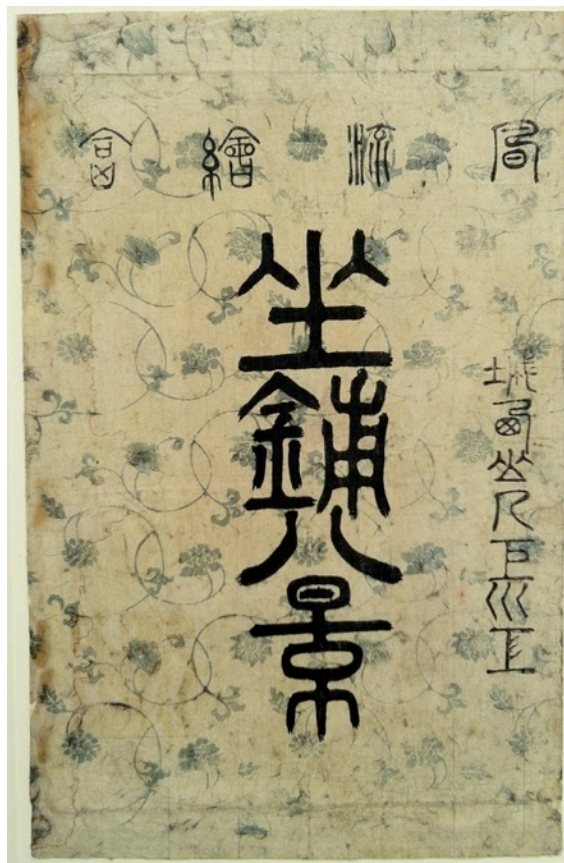 風流繪合
坐鋪八景
城西山人巨川工